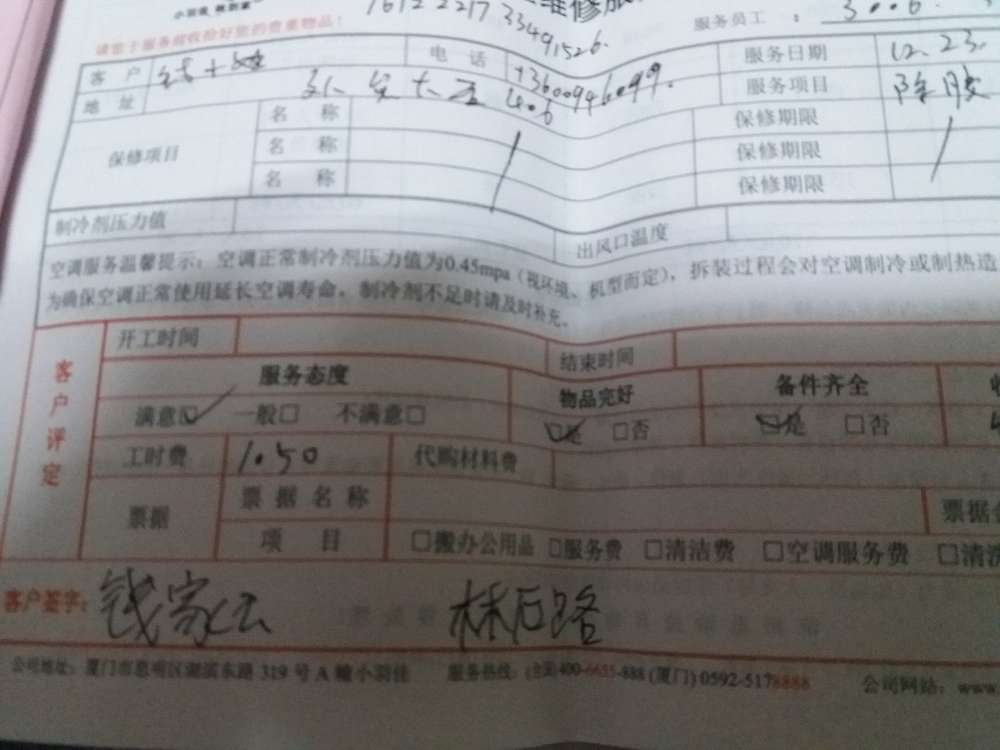 小羽佳
维修服
请您于服务前收拾好您的贵重物品！
服务员工 ： 3006.
16122217
33491526.
客户 电话 服务日期 12.23.
13600946099.
地址 大 406 服务项目 除胶
保修项目
名称 保修期限
名称 保修期限
名称 保修期限
制冷剂压力值 出风口温度
空调服务温馨提示：空调正常制冷剂压力值为0.45mpa（视环境、机型而定），拆装过程会对空调制冷或制热造
为确保空调正常使用延长空调寿命，制冷剂不足时请及时补充。
客户评定
开工时间 结束时间
服务态度 物品完好 备件齐全
满意☑ 一般□ 不满意□ ☑是 □否 ☑是 □否
工时费 1.50 代购材料费
票据 票据名称 票据
项目 □搬办公用品 □服务费 □清洁费 □空调服务费 □清洁
客户签字： 钱家 林 路
公司地址：厦门市思明区湖滨东路 319 号 A 幢小羽佳 服务热线：(全国)400-6655-888 (厦门) 0592-5178888 公司网站：www.